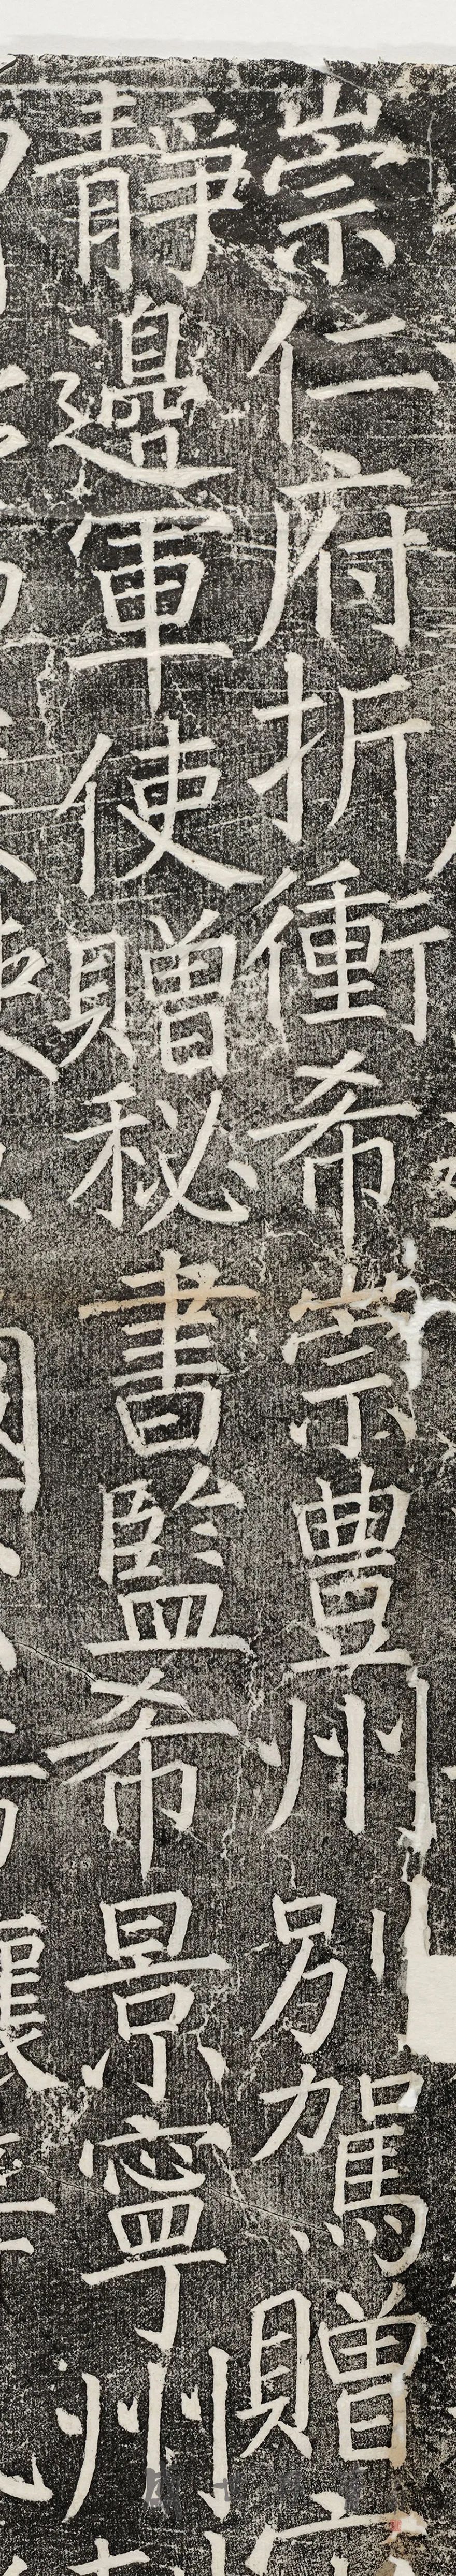 崇仁府折衝希崇豊州別駕贈
靜邊軍使贈秘書監希景寧州